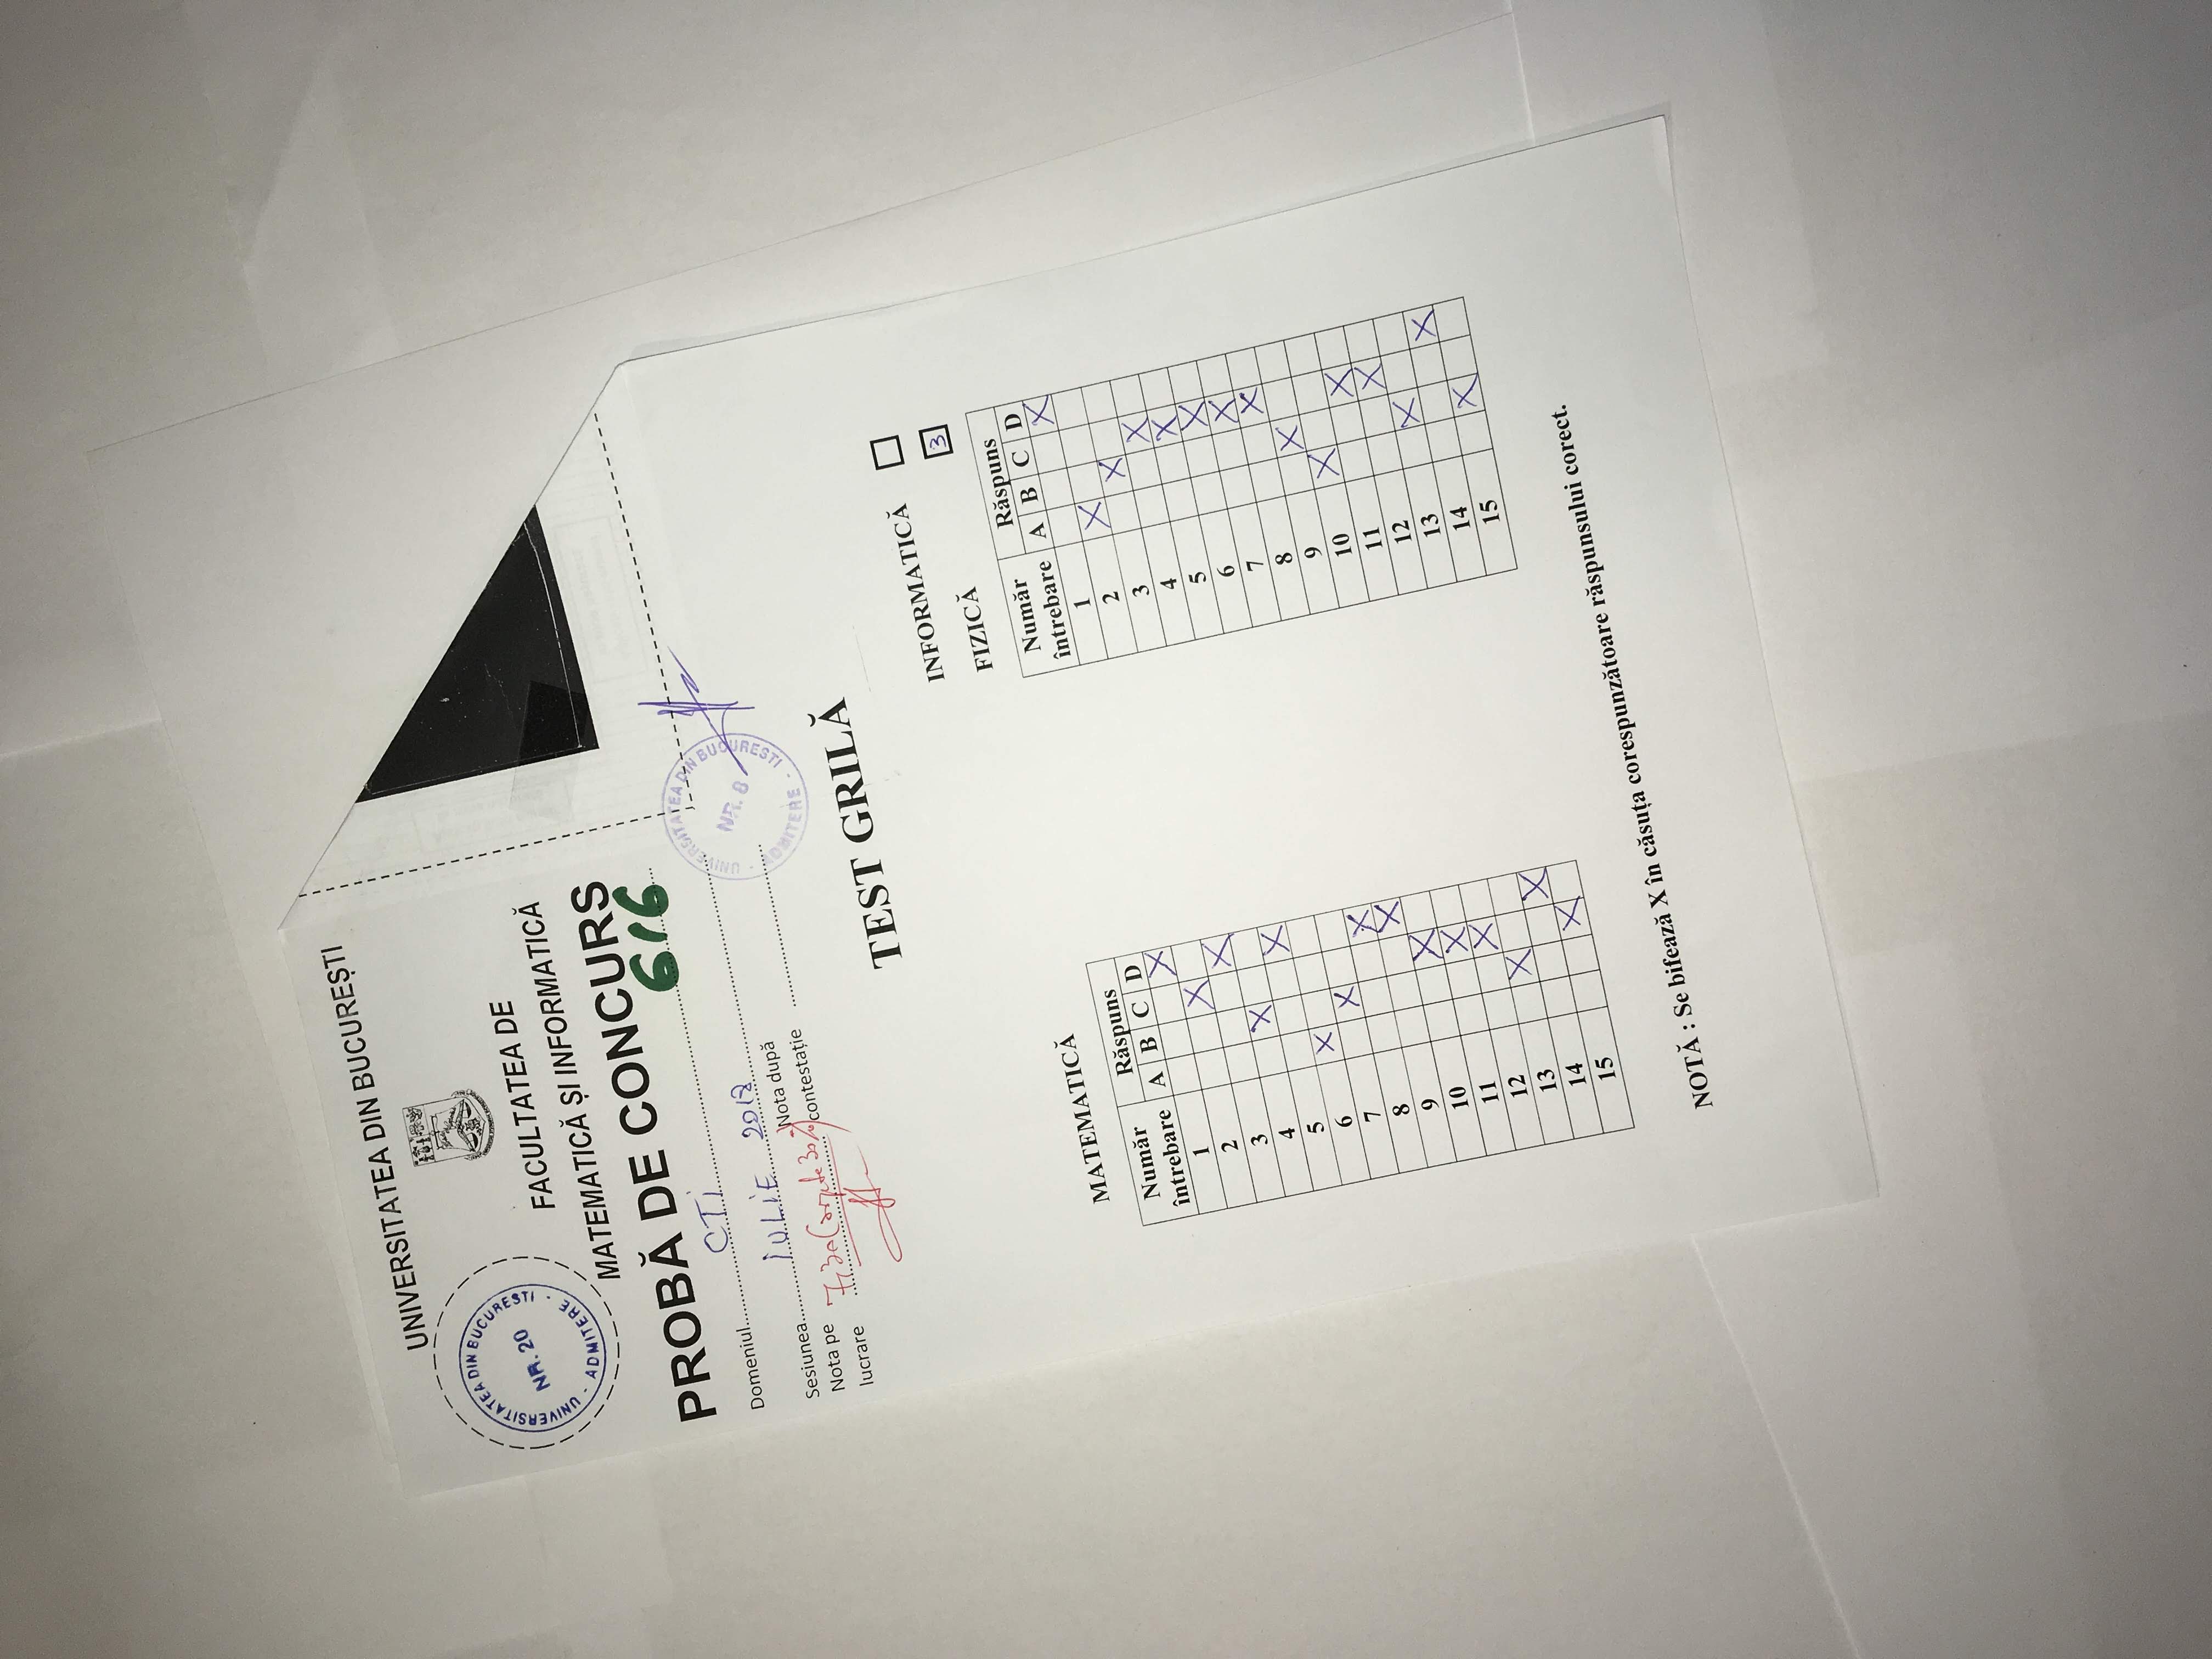 UNIVERSITATEA DIN BUCUREȘTI
UNIVERSITATEA DIN BUCURESTI - ADMITERE -
NR. 20
FACULTATEA DE
MATEMATICĂ ȘI INFORMATICĂ
PROBĂ DE CONCURS
616
Domeniul CTI
Sesiunea IULIE 2018
Nota pe lucrare 7,30
Nota după contestație
UNIVERSITATEA DIN BUCURESTI - ADMITERE -
NR. 8
TEST GRILĂ
INFORMATICĂ
FIZICĂ 3
Număr întrebare Răspuns
A B C D
1 X
2 X
3 X
4 X
5 X
6 X
7 X
8 X
9 X
10 X
11 X
12 X
13 X
14 X
15 X
MATEMATICĂ
Număr întrebare Răspuns
A B C D
1 X
2 X
3 X
4 X
5 X
6 X
7 X
8 X
9 X
10 X
11 X
12 X
13 X
14 X
15 X
NOTĂ : Se bifează X în căsuța corespunzătoare răspunsului corect.